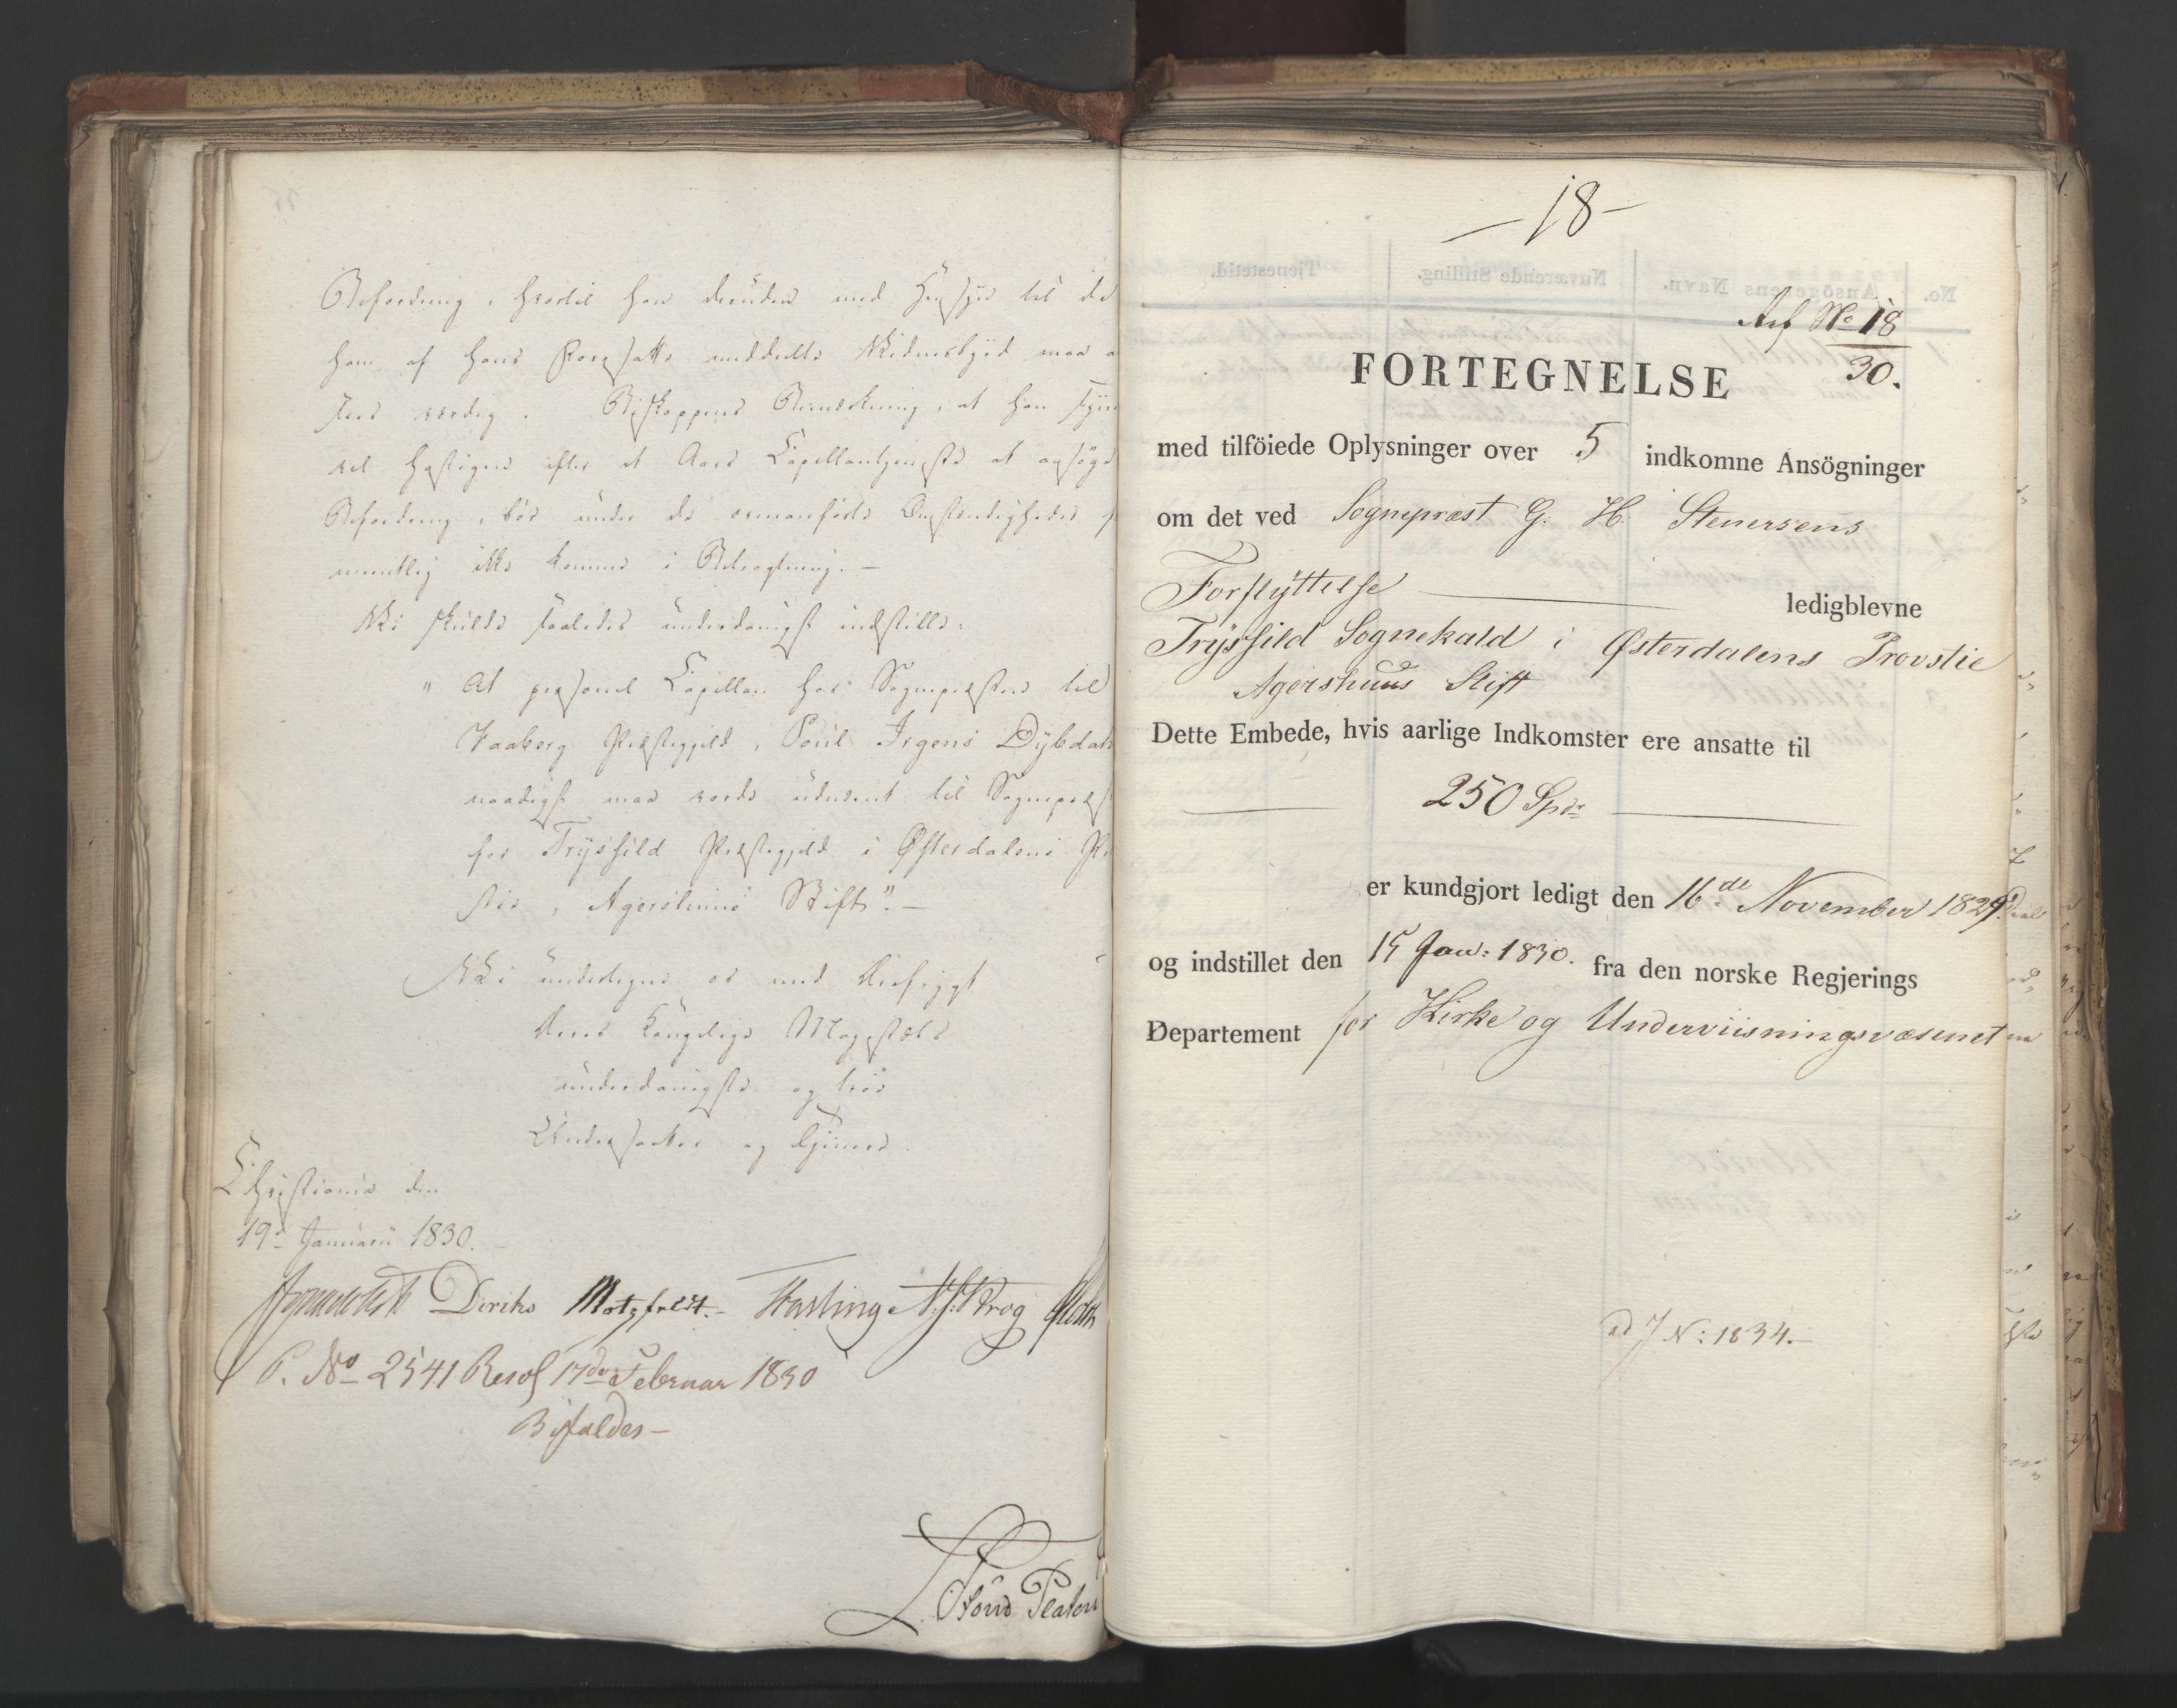 Befordring, hvortil han desuden med Hensyn til de
ham af hans Foresatte meddeelte Vidnesbyrd maa
sees værdig. Biskoppens Bemærkning, at han syn
vel hastigen efter et Aars Capellantjeneste at ansøge
Befordring, bør under de ovenanførte Omstændigheder
mentlig ikke komme i Betragtning. —
Vi skulde saaledes underdanigst indstille:
" At personel Capellan hos Sognepræsten til
Faaberg Præstegjeld, Poul Irgens Dybdah
naadigst maa vorde udnævnt til Sognepræst
for Trysfild Præstegjeld i Østerdalens Pr
stie, Agershuus Stift". —
Vi undertegne os med Dybfrygt
Deres Kongelige Majestæts
underdanigste og troe
Undersaatter og Tjenere
Christiania den
19de Januari 1830.
Diriks Motzfeldt. Fasting
P. No 2541 Resol 17de Februar 1830
Bifaldes —
Platen
— 18 —
No 18
30.
FORTEGNELSE
med tilföiede Oplysninger over 5 indkomne Ansögninger
om det ved Sognepræst G. H. Stenersens
Forflyttelse ledigblevne
Trysfild Sognekald i Østerdalens Provstie
Agershuus Stift
Dette Embede, hvis aarlige Indkomster ere ansatte til
250 Spdr
er kundgjort ledigt den 16de November 1829
og indstillet den 15 Jan: 1830. fra den norske Regjerings
Departement for Kirke og Underviisningsvæsenet
ad J N: 1834. —